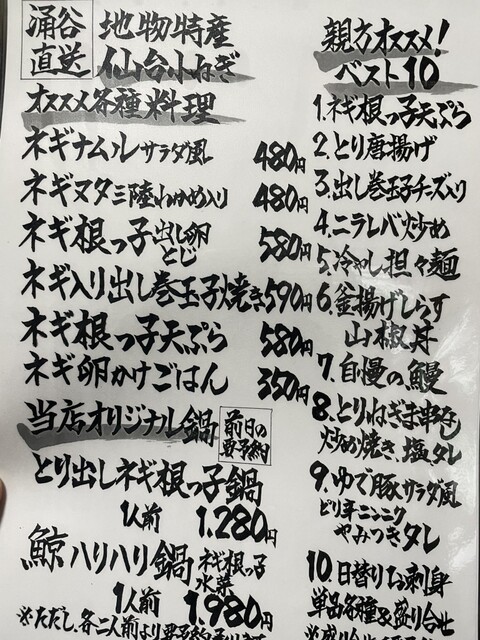 涌谷
直送
地物特産
仙台小ねぎ
オススメ各種料理
ネギナムルサラダ風 480円
ネギヌタ三陸わかめ入り 480円
ネギ根っ子出し卵とじ 580円
ネギ入り出し巻玉子焼き 590円
ネギ根っ子天ぷら 580円
ネギ卵かけごはん 350円
当店オリジナル鍋
前日の
要予約
とり出しネギ根っ子鍋
1人前 1.280円
鯨ハリハリ鍋 ネギ根っ子
水菜
1人前 1.980円
※ただし、各二人前より
親方オススメ!
ベスト10
1.ネギ根っ子天ぷら
2.とり唐揚げ
3.出し巻玉子チーズ入り
4.ニラレバ炒め
5.冷やし担々麺
6.釜揚げしらす
山椒丼
7.自慢の鰻
8.とりねぎま串
炒め焼き、塩タレ
9.ゆで豚サラダ風
ピリ辛ニンニク
やみつきタレ
10.日替りお刺身
単品各種&盛り合せ